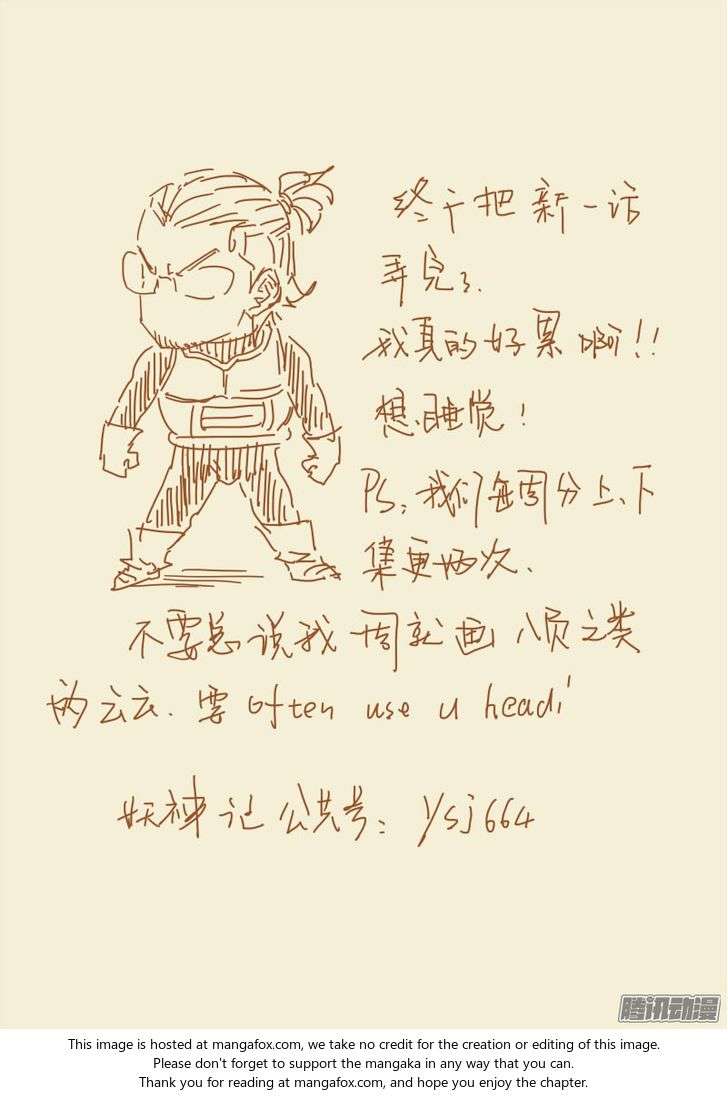 终于把新一话
弄完了.
我真的好累啊!!
想睡觉!
PS,我们每周分上、下
集更两次.
不要总说我一周就画八页之类
的云云.要often use u head!
妖神记公共号:ysj664
腾讯动漫
This image is hosted at mangafox.com, we take no credit for the creation or editing of this image.
Please don't forget to support the mangaka in any way that you can.
Thank you for reading at mangafox.com, and hope you enjoy the chapter.